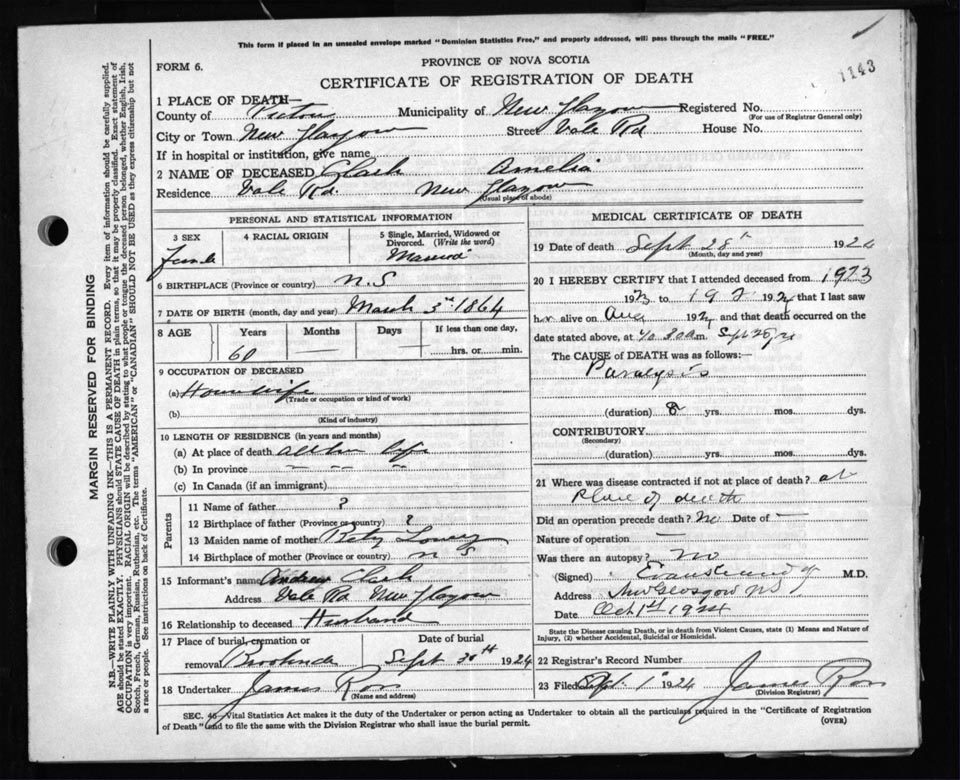 This form if placed in an unsealed envelope marked "Dominion Statistics Free," and properly addressed, will pass through the mails "FREE."
FORM 6.
PROVINCE OF NOVA SCOTIA
CERTIFICATE OF REGISTRATION OF DEATH
1143
1 PLACE OF DEATH—
County of Pictou Municipality of New Glasgow Registered No.
(For use of Registrar General only)
City or Town New Glasgow Street Vale Rd House No.
If in hospital or institution, give name
2 NAME OF DECEASED Clark Amelia
Residence Vale Rd. New Glasgow
(Usual place of abode)
PERSONAL AND STATISTICAL INFORMATION
3 SEX
Female
4 RACIAL ORIGIN
5 Single, Married, Widowed or Divorced. (Write the word)
Married
6 BIRTHPLACE (Province or country) N.S
7 DATE OF BIRTH (month, day and year) March 3rd 1864
8 AGE Years Months Days If less than one day,
60 — — hrs. or min.
9 OCCUPATION OF DECEASED
(a) Housewife
(Trade or occupation or kind of work)
(b)
(Kind of industry)
10 LENGTH OF RESIDENCE (in years and months)
(a) At place of death all her life
(b) In province — — —
(c) In Canada (if an immigrant)
Parents
11 Name of father ?
12 Birthplace of father (Province or country) ?
13 Maiden name of mother
14 Birthplace of mother (Province or country) N S
15 Informant's name Andrew Clark
Address Vale Rd New Glasgow
16 Relationship to deceased Husband
17 Place of burial, cremation or removal
Date of burial
Sept 30th 1924
18 Undertaker James Ross
(Name and address)
MEDICAL CERTIFICATE OF DEATH
19 Date of death Sept 28th 1924
(Month, day and year)
20 I HEREBY CERTIFY that I attended deceased from 1923
192 to 192 1924 that I last saw
her alive on Aug 1924 and that death occurred on the
date stated above, at m.
The CAUSE of DEATH was as follows:—
Paralysis
(duration) 8 yrs. mos. dys.
CONTRIBUTORY
(Secondary)
(duration) yrs. mos. dys.
21 Where was disease contracted if not at place of death? at
Place of death
Did an operation precede death? No Date of —
Nature of operation —
Was there an autopsy? No
(Signed) M.D.
Address New Glasgow NS
Date Oct 1st 1924
State the Disease causing Death, or in death from Violent Causes, state (1) Means and Nature of Injury, (2) whether Accidental, Suicidal or Homicidal.
22 Registrar's Record Number
23 Filed Sept 1st 1924 James Ross
(Division Registrar)
SEC. 46—Vital Statistics Act makes it the duty of the Undertaker or person acting as Undertaker to obtain all the particulars required in the "Certificate of Registration
of Death" and to file the same with the Division Registrar who shall issue the burial permit.
(OVER)
MARGIN RESERVED FOR BINDING
N.B.—WRITE PLAINLY WITH UNFADING INK—THIS IS A PERMANENT RECORD. Every item of information should be carefully supplied.
AGE should be stated EXACTLY. PHYSICIANS should STATE CAUSE OF DEATH in plain terms, so that it may be properly classified. Exact statement of
OCCUPATION is very important. RACIAL ORIGIN will be described by stating to what people or tongue the deceased person belonged, whether English, Irish,
Scotch, French, German, Russian, Ruthenian, etc. The terms "AMERICAN" or "CANADIAN" SHOULD NOT BE USED as they express citizenship but not
a race or people. See instructions on back of Certificate.